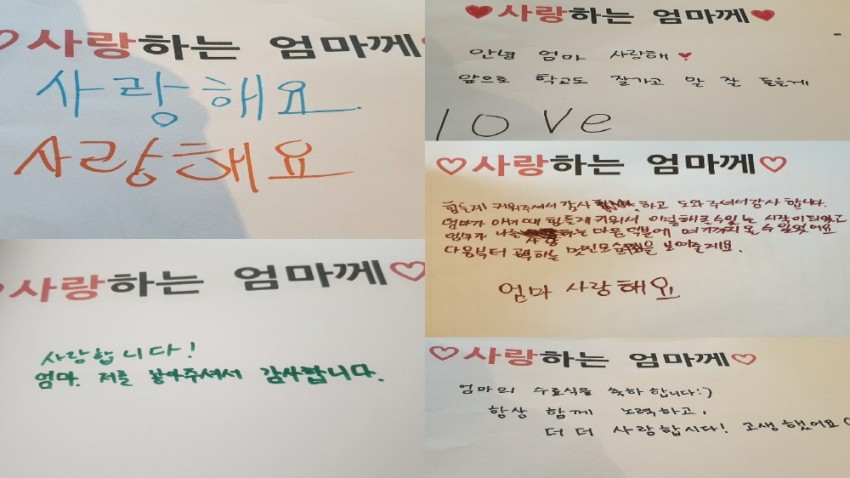 ♡사랑하는 엄마께♡
사랑해요
사랑해요
♡사랑하는 엄마께♡
사랑합니다!
엄마. 저를 낳아주셔서 감사합니다.
♥사랑하는 엄마께♥
안녕 엄마 사랑해♥
앞으로 학교도 잘가고 말 잘 들을게
love
♡사랑하는 엄마께♡
힘들게 키워주셔서 감사 하고 도와주셔서 감사 합니다.
엄마가 애기때 힘들게 키워서
엄마가 나를 사랑하는 마음 덕분에 여기까지 올 수 있었어요
다음부터 멋진모습을 보여줄게요.
엄마 사랑해요
♡사랑하는 엄마께♡
엄마의 수료식을 축하 합니다:)
항상 함께 노력하고,
더 더 사랑합시다! 고생했어요♡